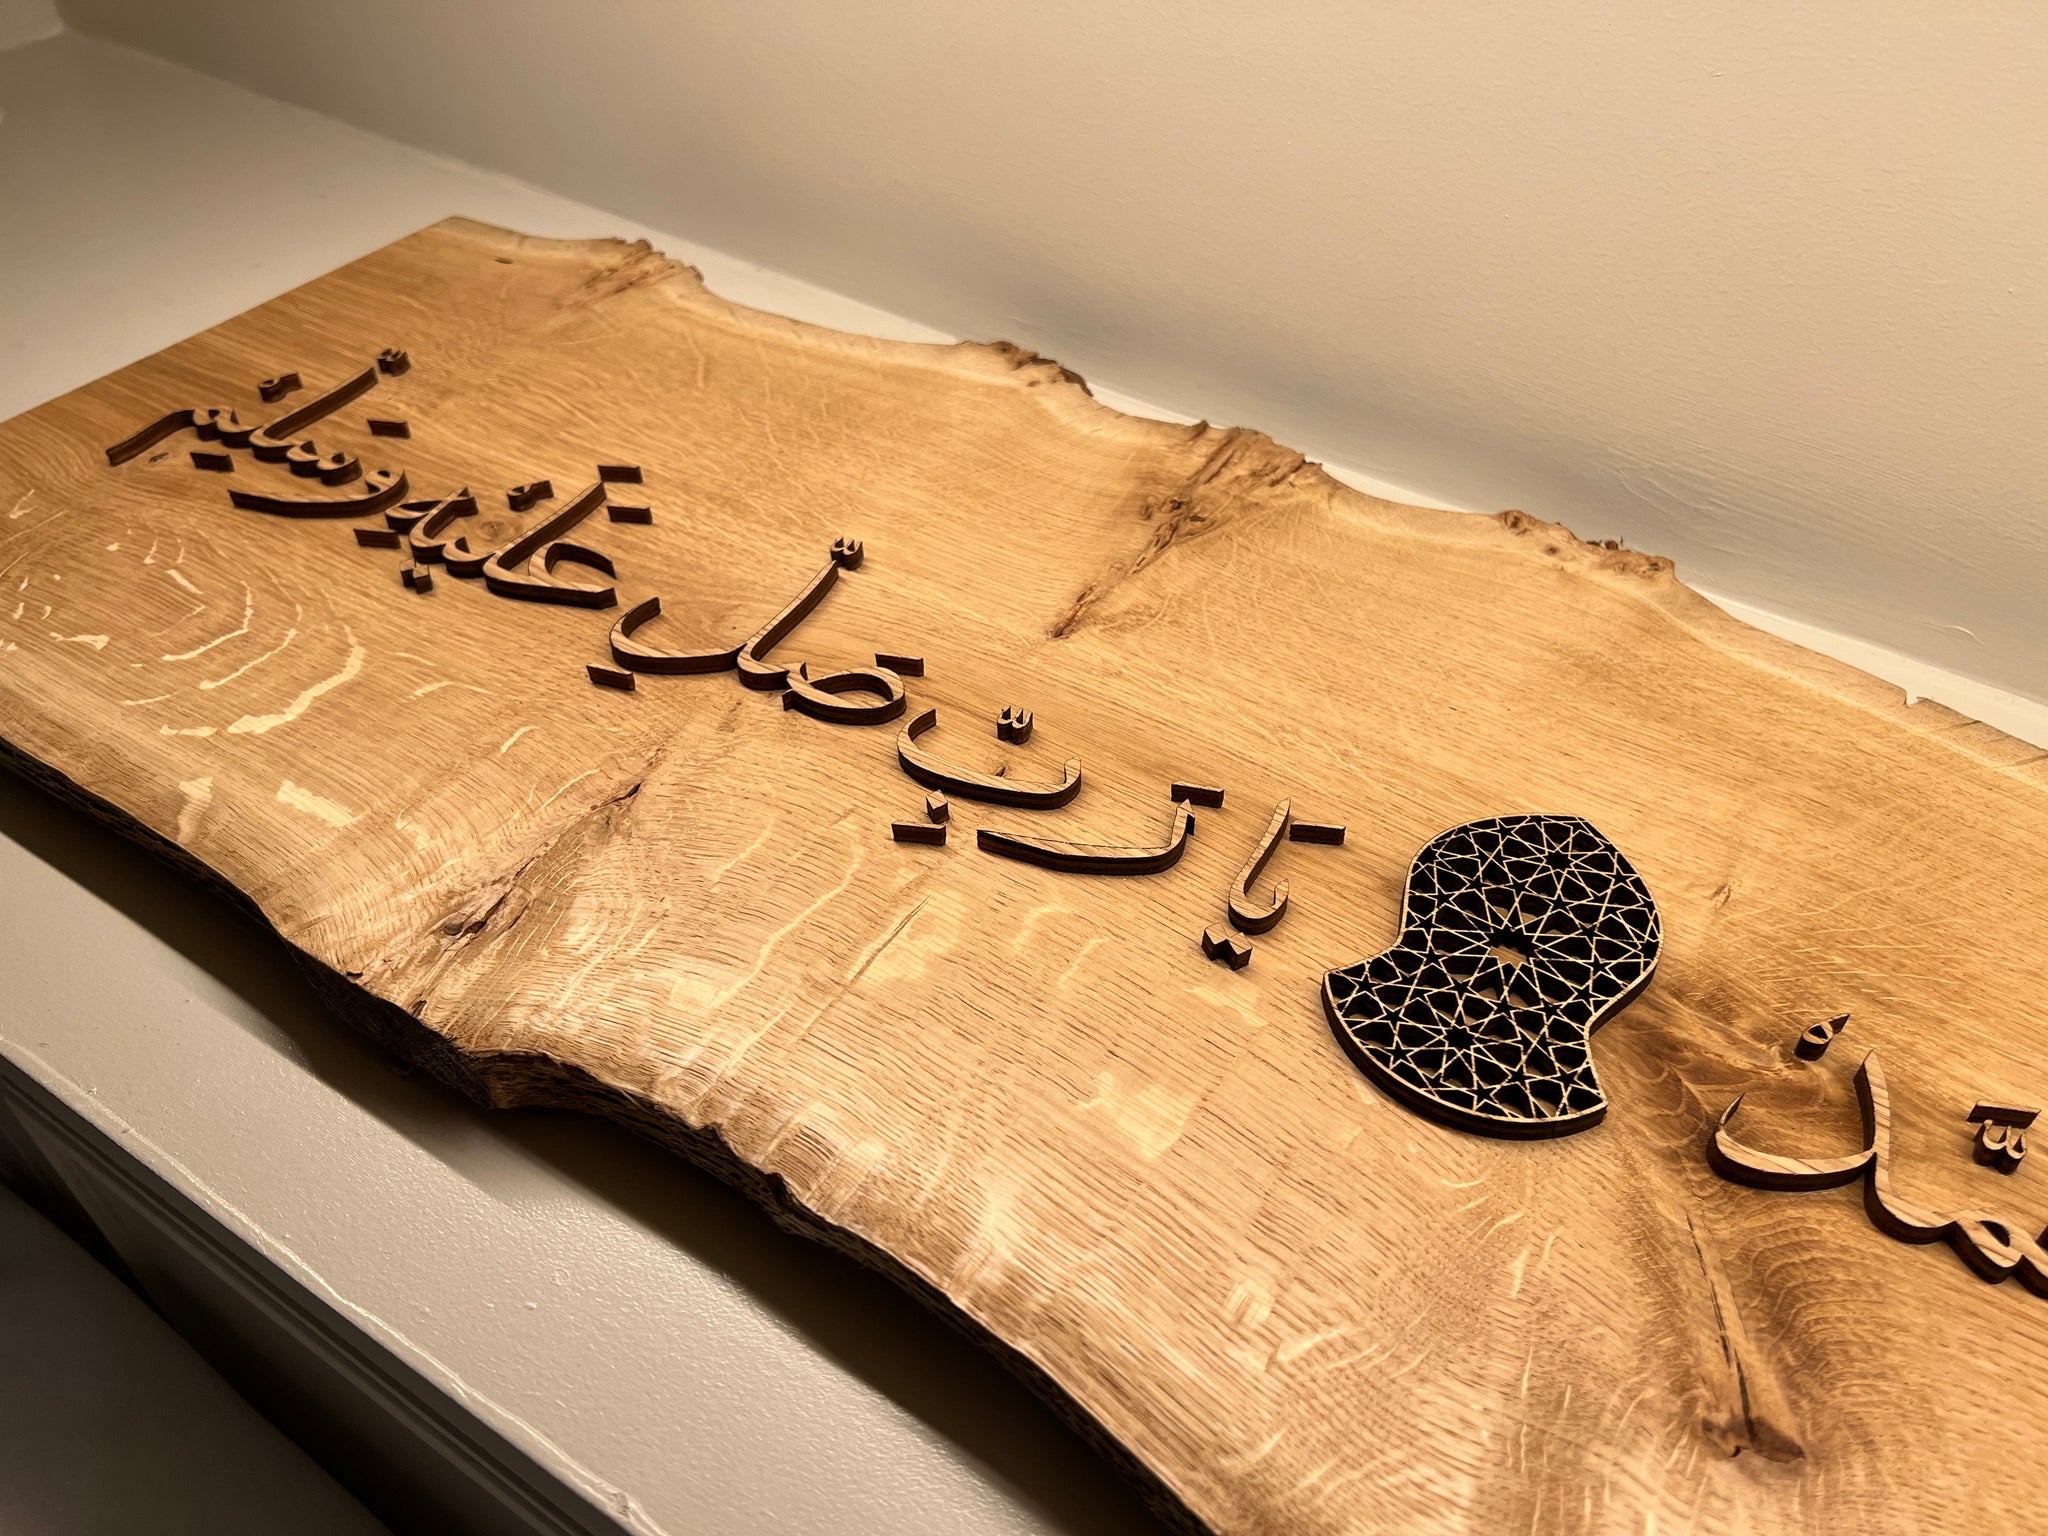 يَا رَبِّ صَلِّ عَلَيْهِ وَسَلِّمْ